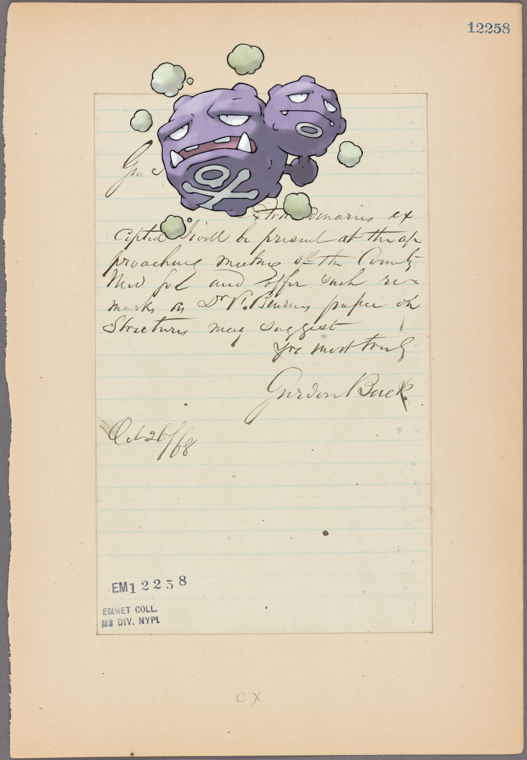 12258
Geo S
Extraordinaries ex
cepted I will be present at the ap
proaching meeting of the County
Med Soc and offer such re=
marks as Dr V. Burens paper on
Strictures may suggest
Yrs most truly
Gurdon Buck
Oct 26/68
EM12258
EMMET COLL.
MS DIV. NYPL
C X